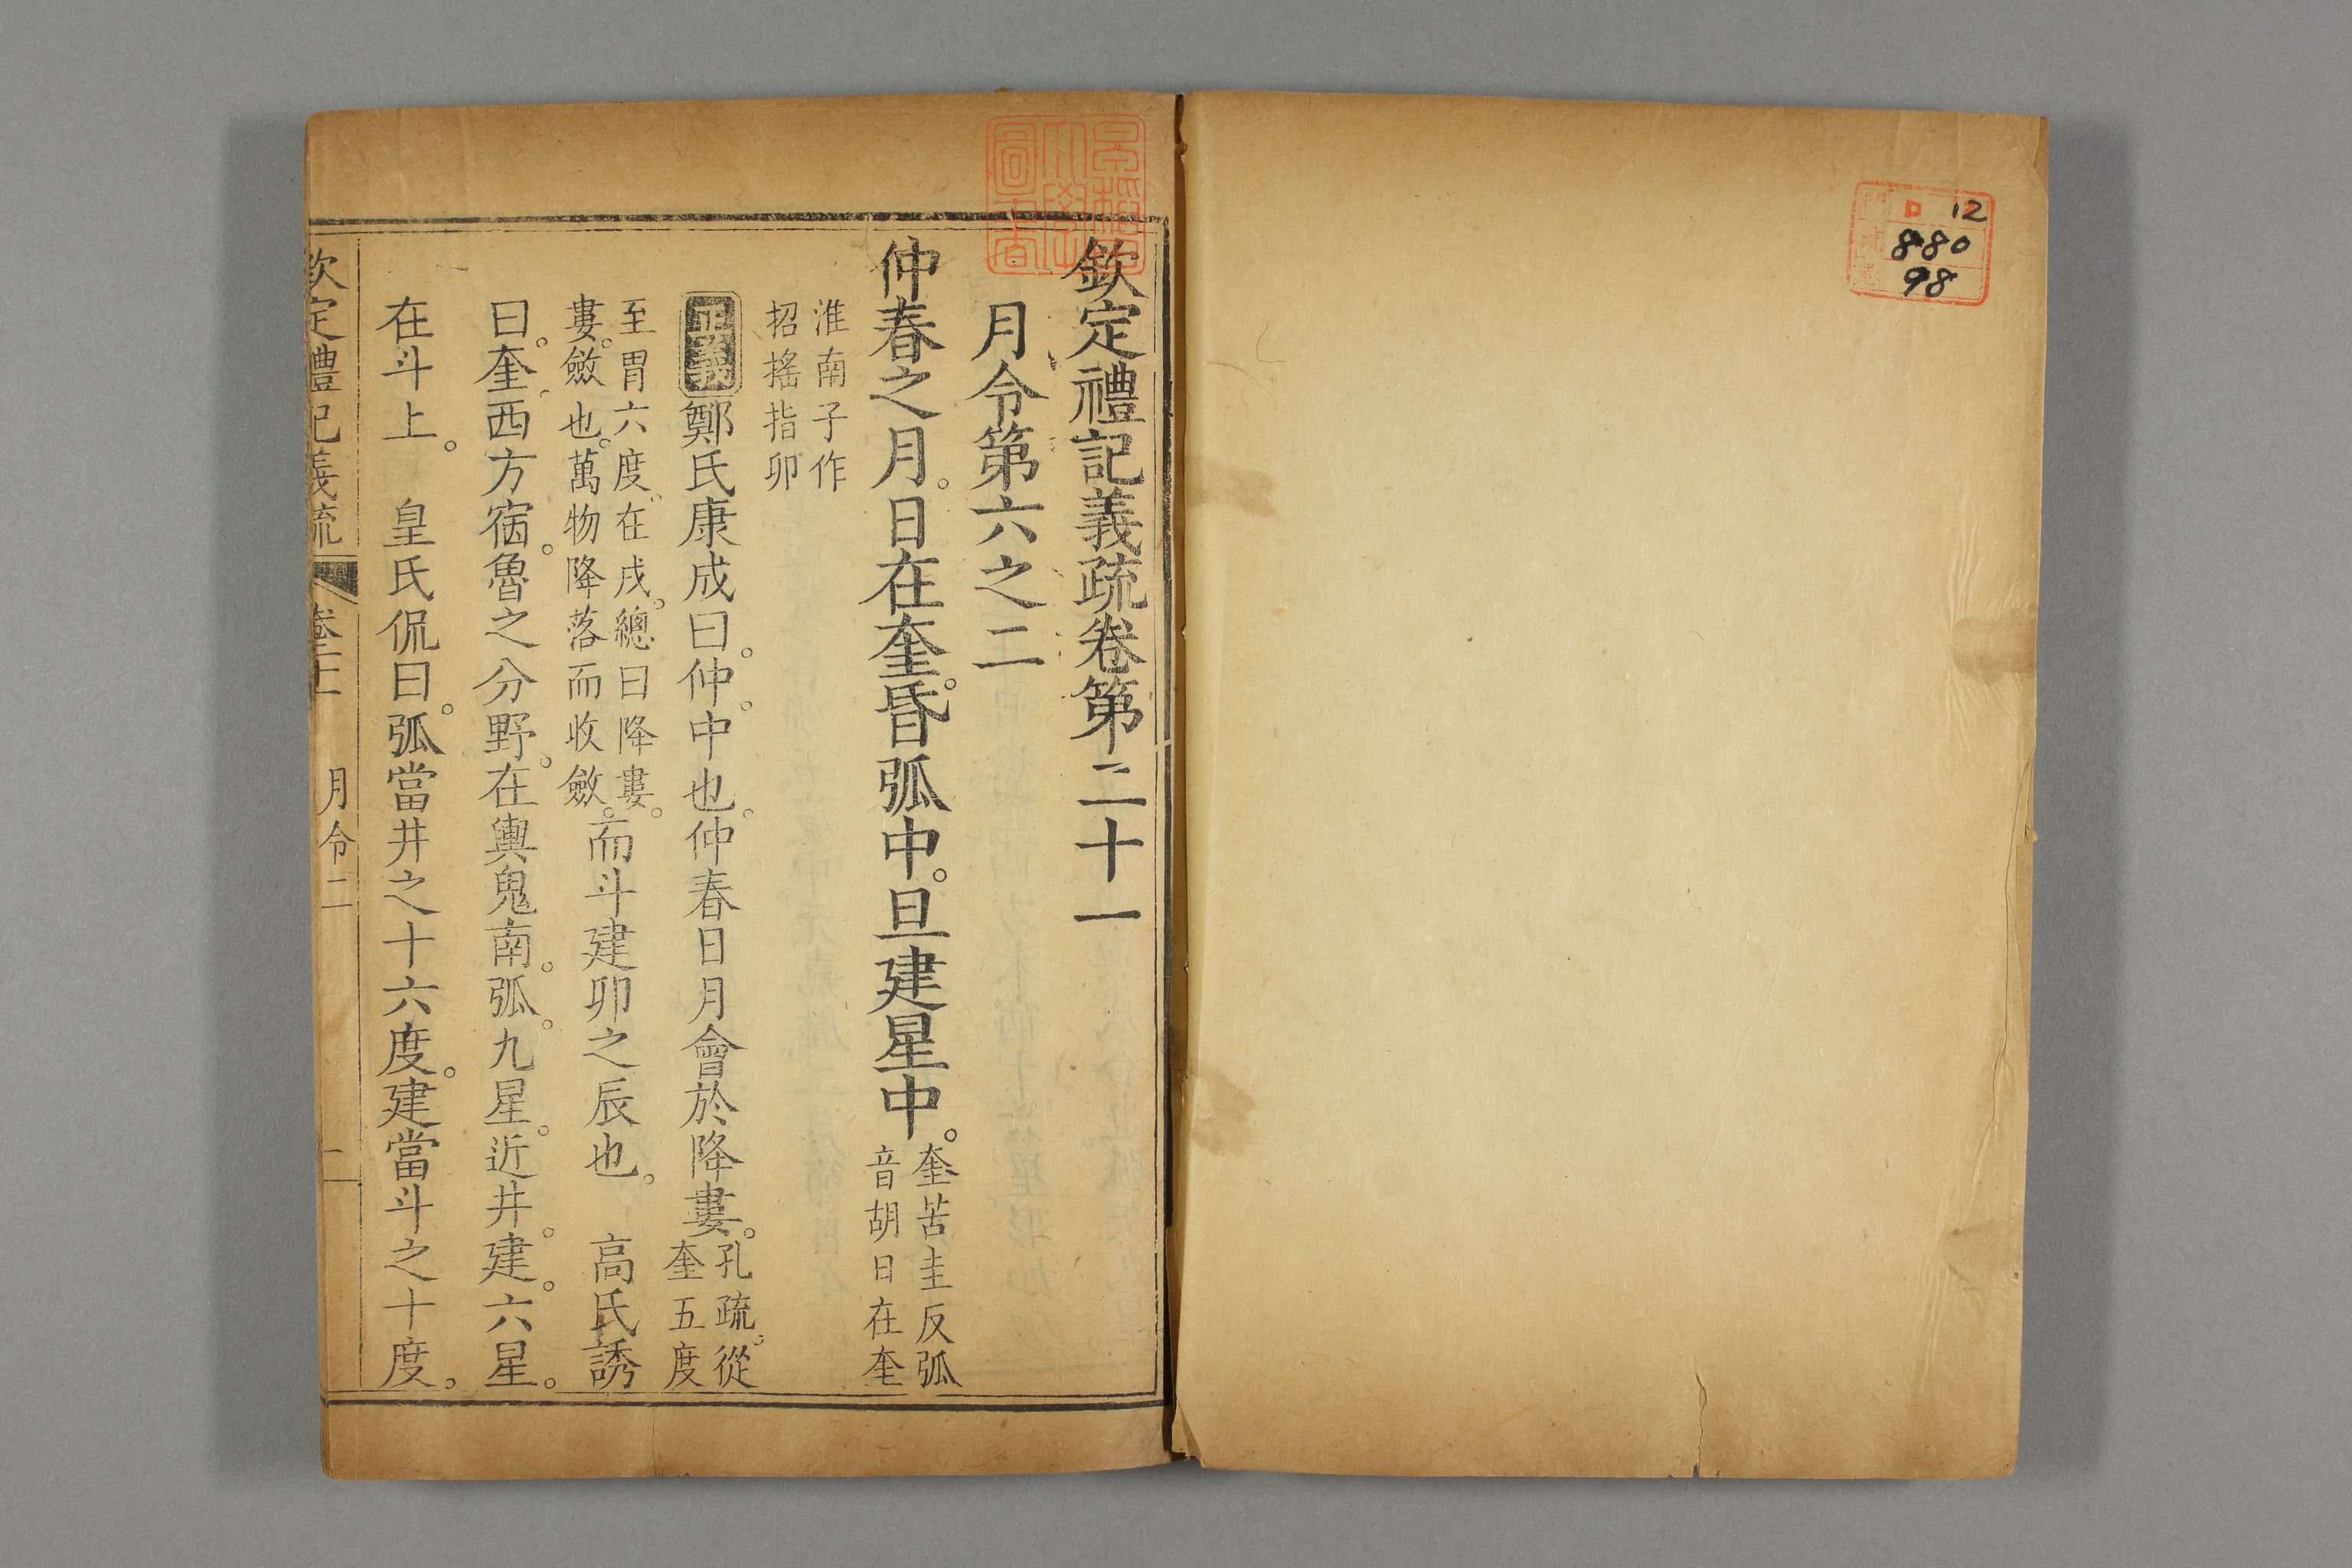 12
880
98
欽定禮記義疏卷第二十一
月令第六之二
仲春之月。日在奎。昏弧中。旦建星中。奎苦圭反弧
音胡日在奎
淮南子作
招搖指卯
正義鄭氏康成曰。仲。中也。仲春日月會於降婁。孔疏。從
奎五度
至胃六度。在戌。總曰降婁。
婁。斂也。萬物降落而收斂。而斗建卯之辰也。 高氏誘
曰。奎。西方宿。魯之分野。在輿鬼南。弧。九星。近井。建。六星。
在斗上。 皇氏侃曰。弧當井之十六度。建當斗之十度。
欽定禮記義疏 卷二十一 月令二 一
早稻田大學圖書